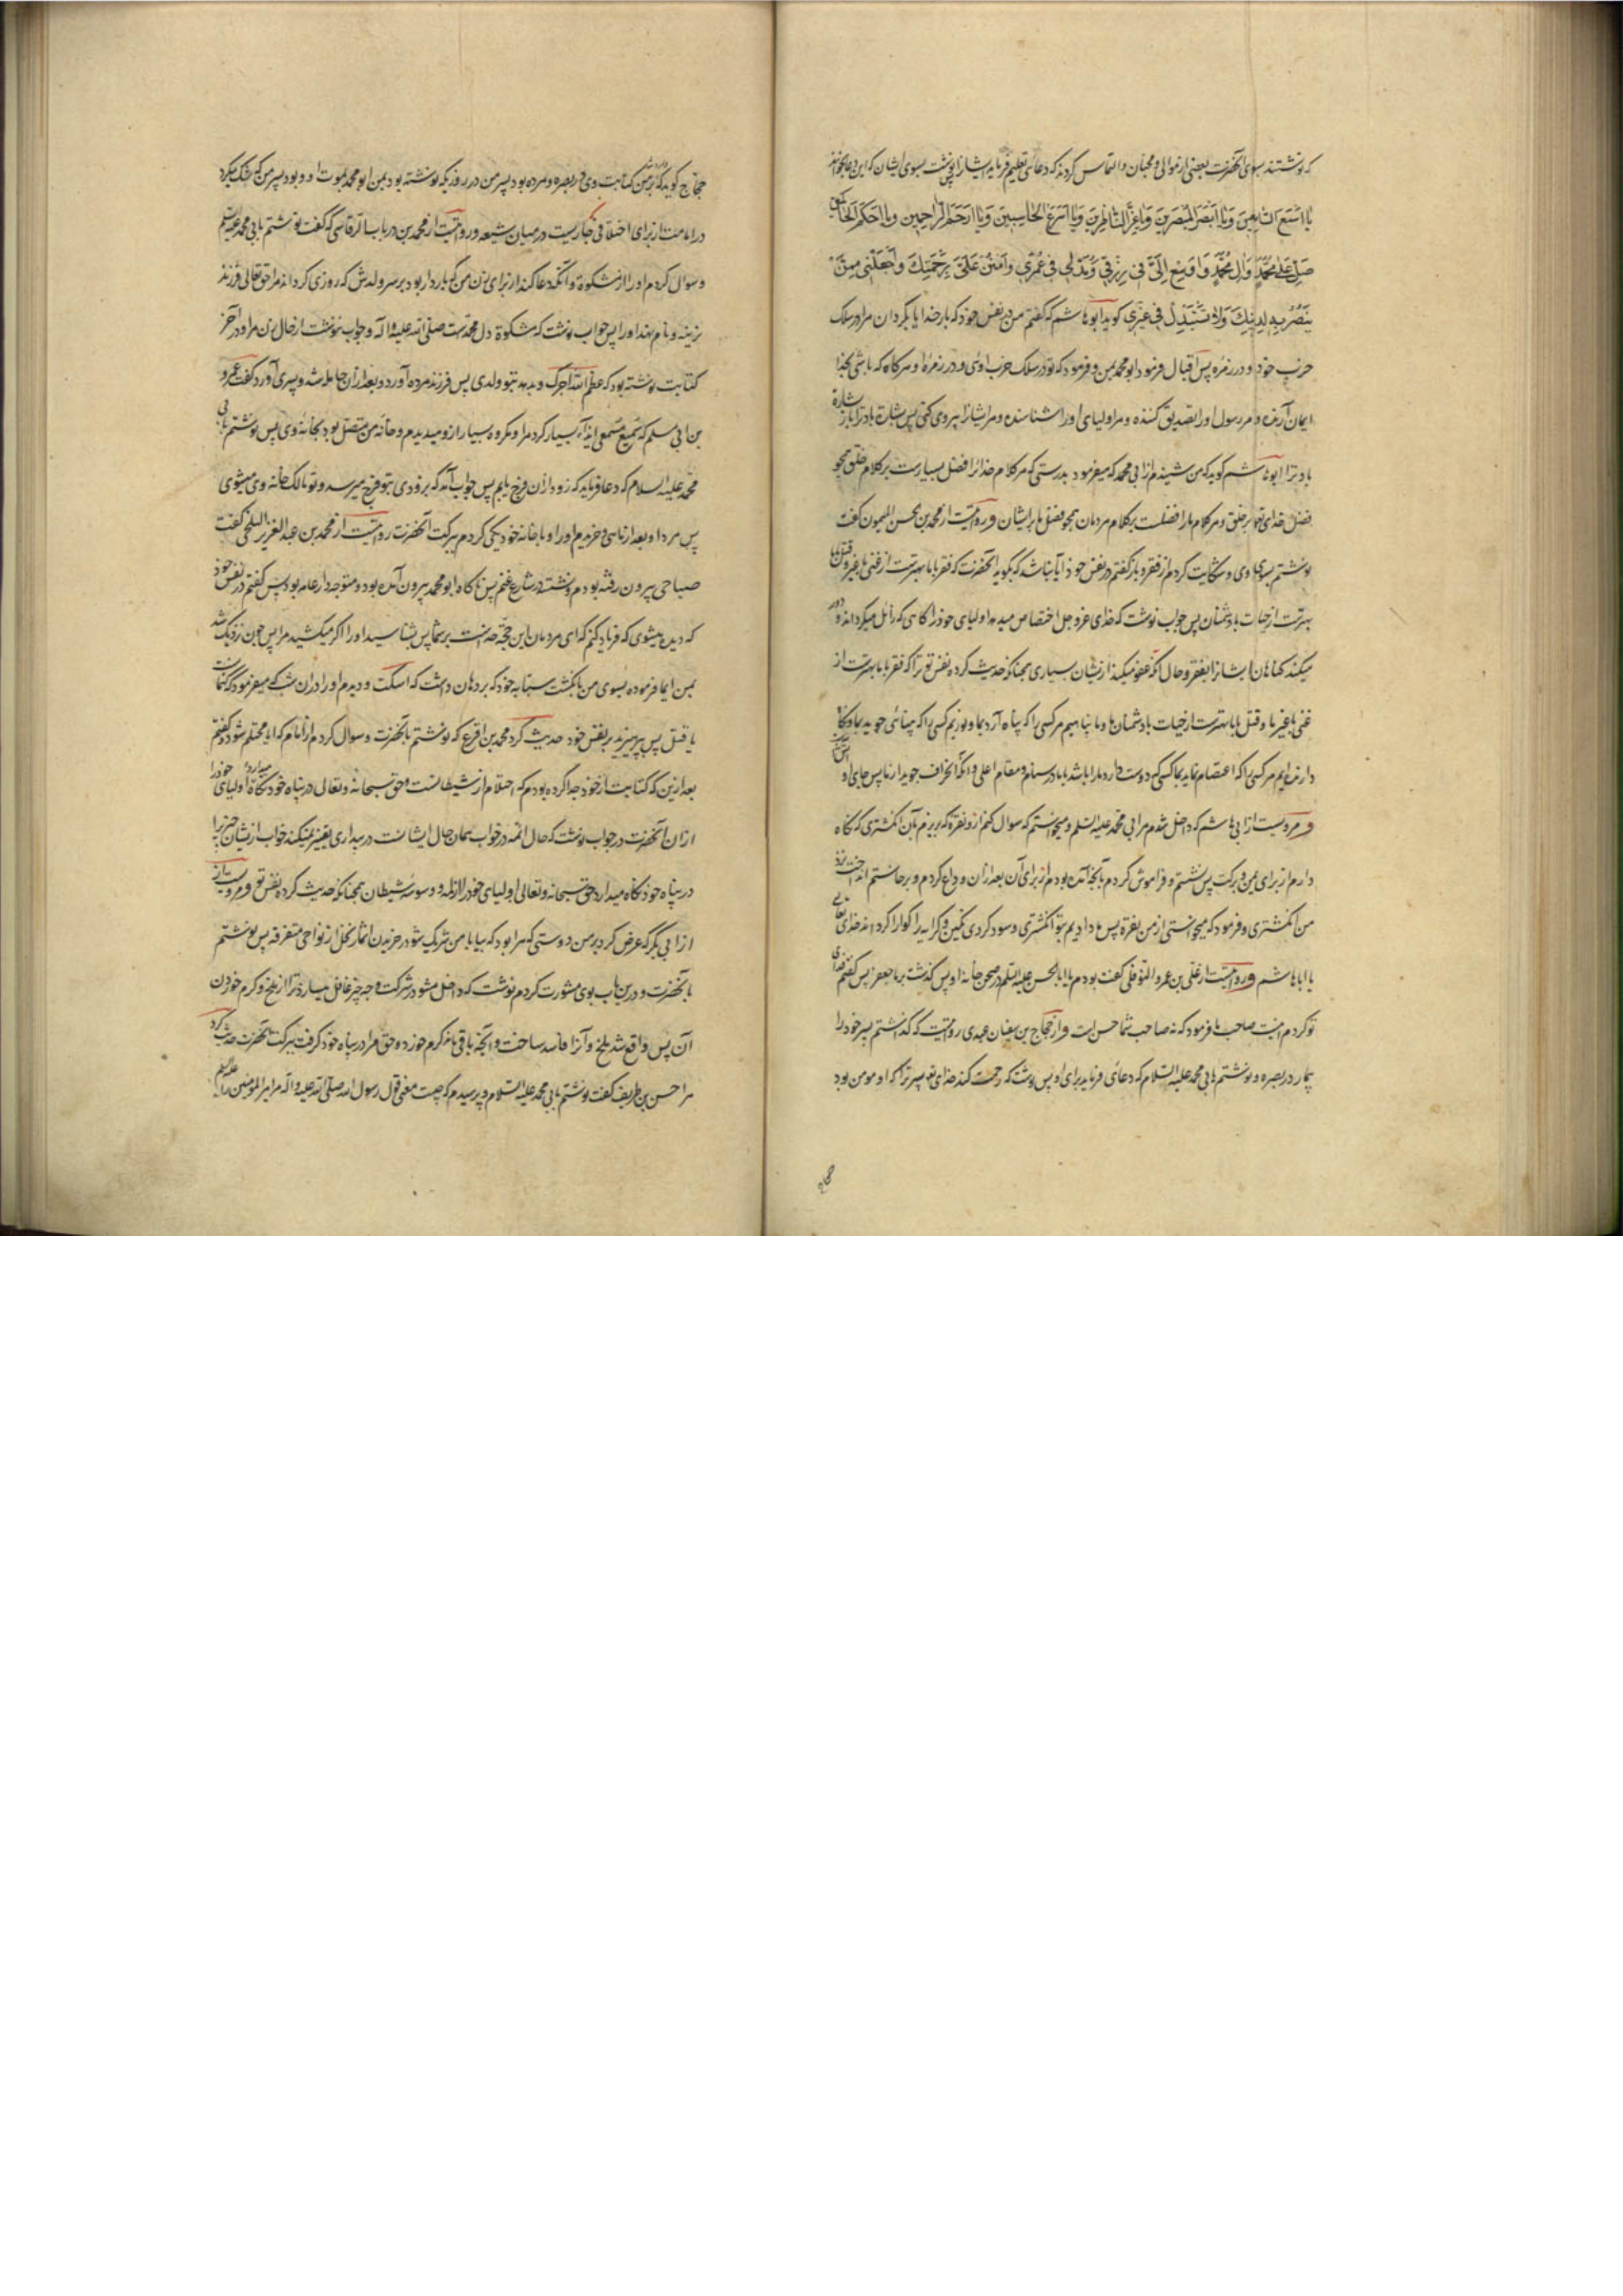 که نوشتند بسوی آنحضرت بعضی از موالی و محبان و التماس کردند که دعائی تعلیم فرماید ایشانرا پس نوشت بسوی ایشان که این دعا بخوانند
یَا اَسْمَعَ السَّامِعِینَ وَیَا اَبْصَرَ الْمُبْصِرِینَ وَیَا عِزَّ النَّاظِرِینَ وَیَا اَسْرَعَ الْحَاسِبِینَ وَیَا اَرْحَمَ الرَّاحِمِینَ وَیَا اَحْکَمَ الْحَاکِمِینَ
صَلِّ عَلٰی مُحَمَّدٍ وَاٰلِ مُحَمَّدٍ وَاَوْسِعْ لِی فِی رِزْقِی وَمُدَّ لِی فِی عُمْرِی وَامْنُنْ عَلَیَّ بِرَحْمَتِکَ وَاجْعَلْنِی مِمَّنْ
یَنْتَصِرُ بِهِ لِدِینِکَ وَلَا تَسْتَبْدِلْ بِی غَیْرِی کوید ابو هاشم که کفتم من در نفس خود که بار خدایا بکردان مرا در سلک
حزب خود و در زمره پس اقبال فرمود ابو محمد بمن و فرمود که تو در سلک حزب اوئی و در زمره او هرکاه که باشی بخدا
ایمان آرنده و مر رسول اورا تصدیق کننده و مر اولیای اورا شناسنده و مر ایشانرا پیروی کنی پس بشارت باد ترا باز بشارة
باد ترا ابو هاشم کوید که من شنیدم از ابی محمد که میفرمود بدرستی که مر کلام خدا را فضل بسیارست بر کلام خلق همچو
فضل خدای تعالی بر خلق و مر کلام ما را فضلست بر کلام مردمان همچو فضل ما بر ایشان و روایتست از محمد بن الحسن المیمون کفت
نوشتم بسوی وی و شکایت کردم از فقر و باز کفتم در نفس خود آیا نباشد که بکوید آنحضرت که فقر با ما بهترست از غنی با غیر ما و قتل با ما
بهترست از حیات با دشمنان پس جواب نوشت که خدای عز و جل اختصاص میدهد اولیای خود را کاهی که زائل میکرداند و دور
میکند کناهان ایشانرا بفقر و حال آنکه عفو میکند از ایشان بسیاری همچنانکه حدیث کرده نفس تو ترا که فقر با ما بهترست از
غنی با غیر ما و قتل با ما بهترست از حیات با دشمنان ما و ما پناهیم مر کسی را که پناه آرد بما و نوریم کسی را که بینائی جوید بما و نکاه
دارنده‌ایم مر کسی را که اعتصام نماید بما کسی که دوست دارد ما را باشد با ما در سنام و مقام اعلی و آنکه انحراف جوید از ما پس جای او آتش است
و مرویست از ابی هاشم که داخل شدم مر ابی محمد علیه السلم و میخواستم که سوال کنم ازو نقره که بریزم بآن انکشتری که نکاه
دارم از برای یمن و برکت پس نشستم و فراموش کردم بآنچه آمده بودم از برای آن بعد ازان وداع کردم و برخاستم انداخت نزد
من انکشتری و فرمود که میخواستی از من نقره پس ما دادیم بتو انکشتری و سود کردی نکین و کرایه را کوارا کرداند خدای تعالی
یا ابا هاشم و روایتست از علی بن عمرو النوفلی کفت بودم با ابا الحسن علیه السلم در صحن خانه او پس کذشت بر ما جعفر پس کفتم فدای
تو کردم اینست صاحب ما فرمود که نه صاحب شما حسن است و از حجاج بن سفیان عبدی روایتست که کذاشتم پسر خود را
بیمار در بصره و نوشتم بابی محمد علیه السلام که دعائی فرماید برای او پس نوشت که رحمت کند خدای تعالی پسر ترا که او مومن بود
حجاج
حجاج کوید که وارد شد بر من کتابت وی در بصره و مرده بود پسر من در روزیکه نوشته بود بمن ابو محمد بموت او و بود پسر من که شک میکرد
در امامت از برای اختلافی که جاریست در میان شیعه و روایتست از محمد بن درباب الرقاسی که کفت نوشتم بابی محمد علیه السلم
و سوال کردم اورا از مشکوة و آنکه دعا کند از برای زن من که باردار بود بر سر ولدش که روزی کرداند مرا حق تعالی فرزند
نرینه و نام نهد اورا پس جواب نوشت که مشکوة دل محمدست صلی الله علیه و آله و جواب ننوشت از حال زن مرا و در آخر
کتابت نوشته بود که عظم الله اجرک و بدهد بتو ولدی پس فرزند مرده آورد و بعد ازان حامله شد و پسری آورد کفت عمرو
بن ابی مسلم که سمیع مسمعی ایذاء بسیار کرد مرا و مکروه بسیار ازو میدیدم و خانه من متصل بود بخانه وی پس نوشتم بابی
محمد علیه السلام که دعا فرماید که زود ازان فرج یابم پس جواب آمد که بزودی بتو فرج میرسد و تو مالک خانه وی میشوی
پس مرد او بعد از ماهی و خریدم اورا و با خانه خود یکی کردم ببرکت آنحضرت روایتست از محمد بن عبد العزیز البلخی کفت
صباحی بیرون رفته بودم و نشسته در شارع غنم پس ناکاه ابو محمد بیرون آمده بود و متوجه دار عامه بود پس کفتم در نفس خود
که دیده میشوی که فریاد کنم که ای مردمان این حجة خداست بر شما پس بشناسید اورا آکر میکشید مرا پس چون نزدیک شد
بمن ایما فرموده بسوی من بانکشت سبابه خود که بر دهان داشت که اسکت و دیدم اورا دران شب که میفرمود کتمانست
یا قتل پس بپرهیز بر نفس خود حدیث کرد محمد بن اقرع که نوشتم بآنحضرت و سوال کردم از امام که آیا محتلم میشود و کفتم
بعد ازین که کتابت از خود جدا کرده بودم که احتلام از شیطانست و حق سبحانه و تعالی در پناه خود نکاه میدارد اولیای خود را
ازان آنحضرت در جواب نوشت که حال ائمه در خواب همان حال ایشانست در بیداری تغییر نمیکند خواب از ایشان چیزی را
در پناه خود نکاه میدارد حق سبحانه و تعالی اولیای خود را از لمه و وسوسه شیطان همچنانکه حدیث کرده نفس تو و مرویست از
از ابی بکر که عرض کرد بر من دوستی که مرا بود که بیا با من شریک شو در خریدن اثمار نخل از نواحی متفرقه پس نوشتم
بآنحضرت و درین باب بوی مشورت کردم نوشت که داخل مشو در شرکت و چه چیز غافل میسازد ترا از ملخ و کرم خوردن
آن پس واقع شد ملخ و آنرا فاسد ساخت و آنچه باقی ماند کرم خورد و حق مرا در پناه خود کرفت ببرکت آنحضرت حدیث کرد
مرا حسن بن ظریف کفت نوشتم بابی محمد علیه السلام و پرسیدم که چیست معنی قول رسول الله صلی الله علیه و آله مر امیر المومنین را علیه السلم